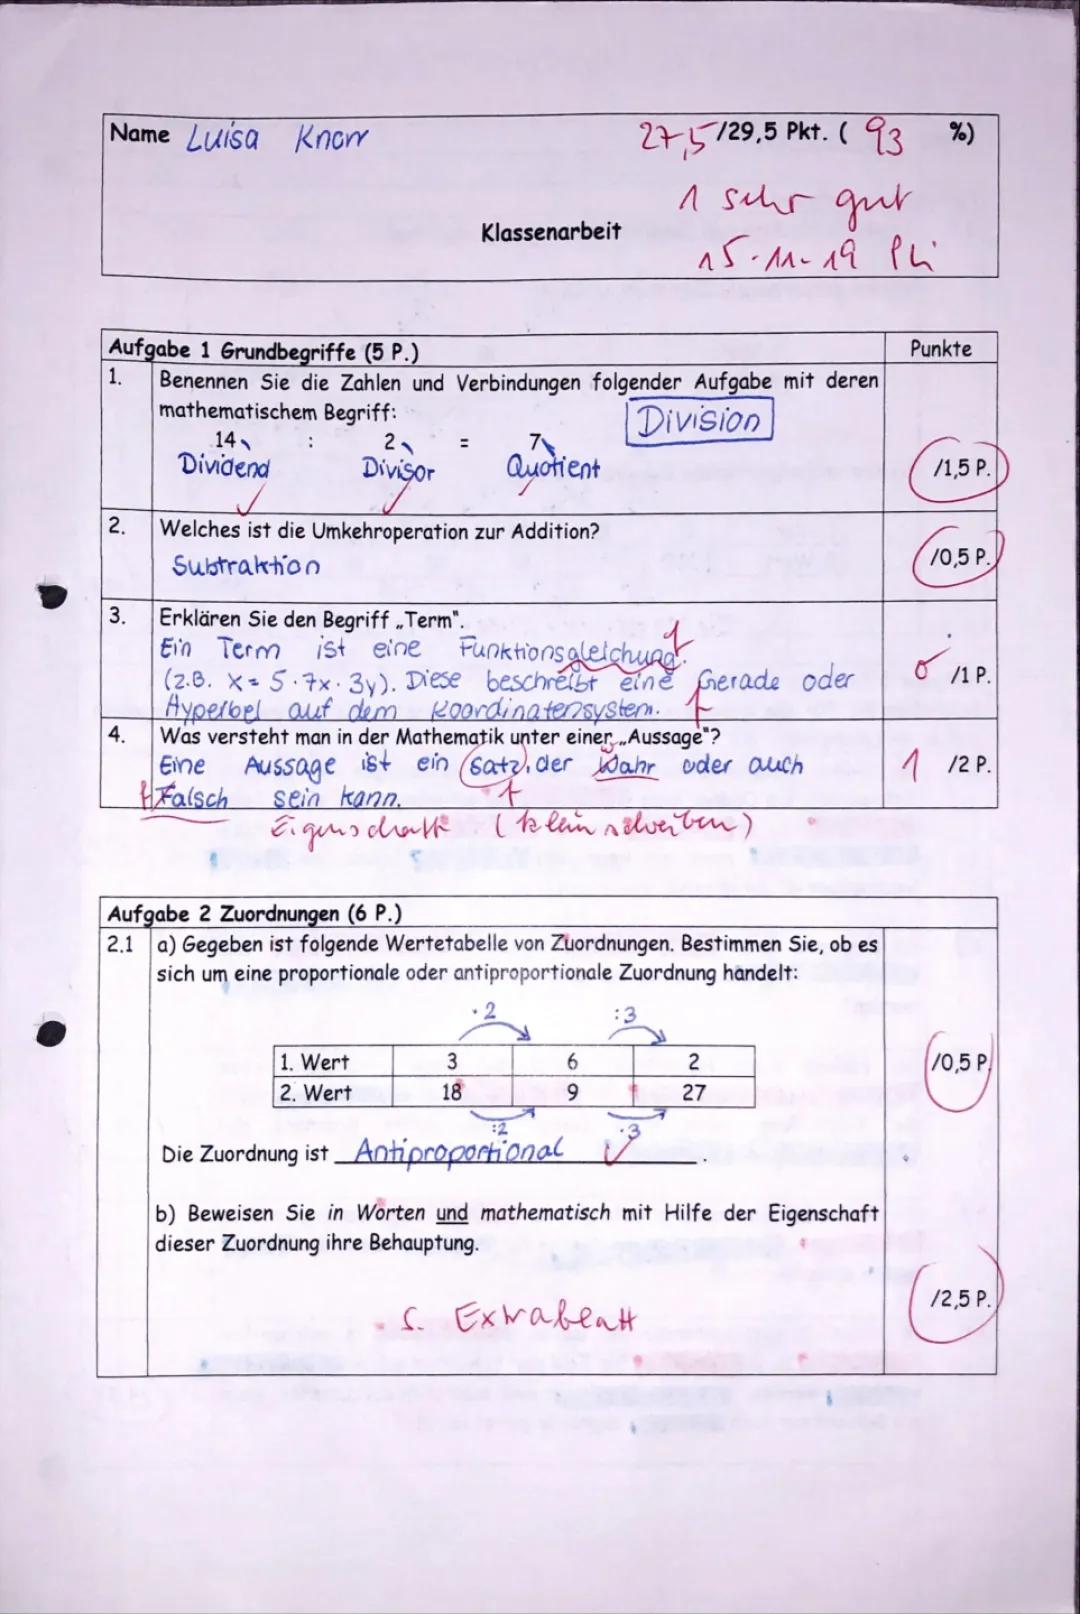 Name Luisa Knorr 27,5/29,5 Pkt. ( 93 %)
1 sehr gut
Klassenarbeit
15.11.19
Aufgabe 1 Grundbegriffe (5 P.) Punkte
1. Benennen Sie die Zahlen und Verbindungen folgender Aufgabe mit deren
mathematischem Begriff: Division
14 : 2 = 7
Dividend Divisor Quotient /1,5 P.
2. Welches ist die Umkehroperation zur Addition?
Subtraktion /0,5 P.
3. Erklären Sie den Begriff „Term".
Ein Term ist eine Funktionsgleichung. f
(z.B. x = 5·7x·3y). Diese beschreibt eine Gerade oder 0 /1 P.
Hyperbel auf dem Koordinatensystem. f
4. Was versteht man in der Mathematik unter einer „Aussage"?
Eine Aussage ist ein Satz, der Wahr oder auch 1 /2 P.
Falsch sein kann. f
Eigenschaft (klein schreiben)
Aufgabe 2 Zuordnungen (6 P.)
2.1 a) Gegeben ist folgende Wertetabelle von Zuordnungen. Bestimmen Sie, ob es
sich um eine proportionale oder antiproportionale Zuordnung handelt:
·2 :3
1. Wert 3 6 2 /0,5 P.
2. Wert 18 9 27
:2 ·3
Die Zuordnung ist Antiproportional.
b) Beweisen Sie in Worten und mathematisch mit Hilfe der Eigenschaft
dieser Zuordnung ihre Behauptung.
s. Extrablatt /2,5 P.